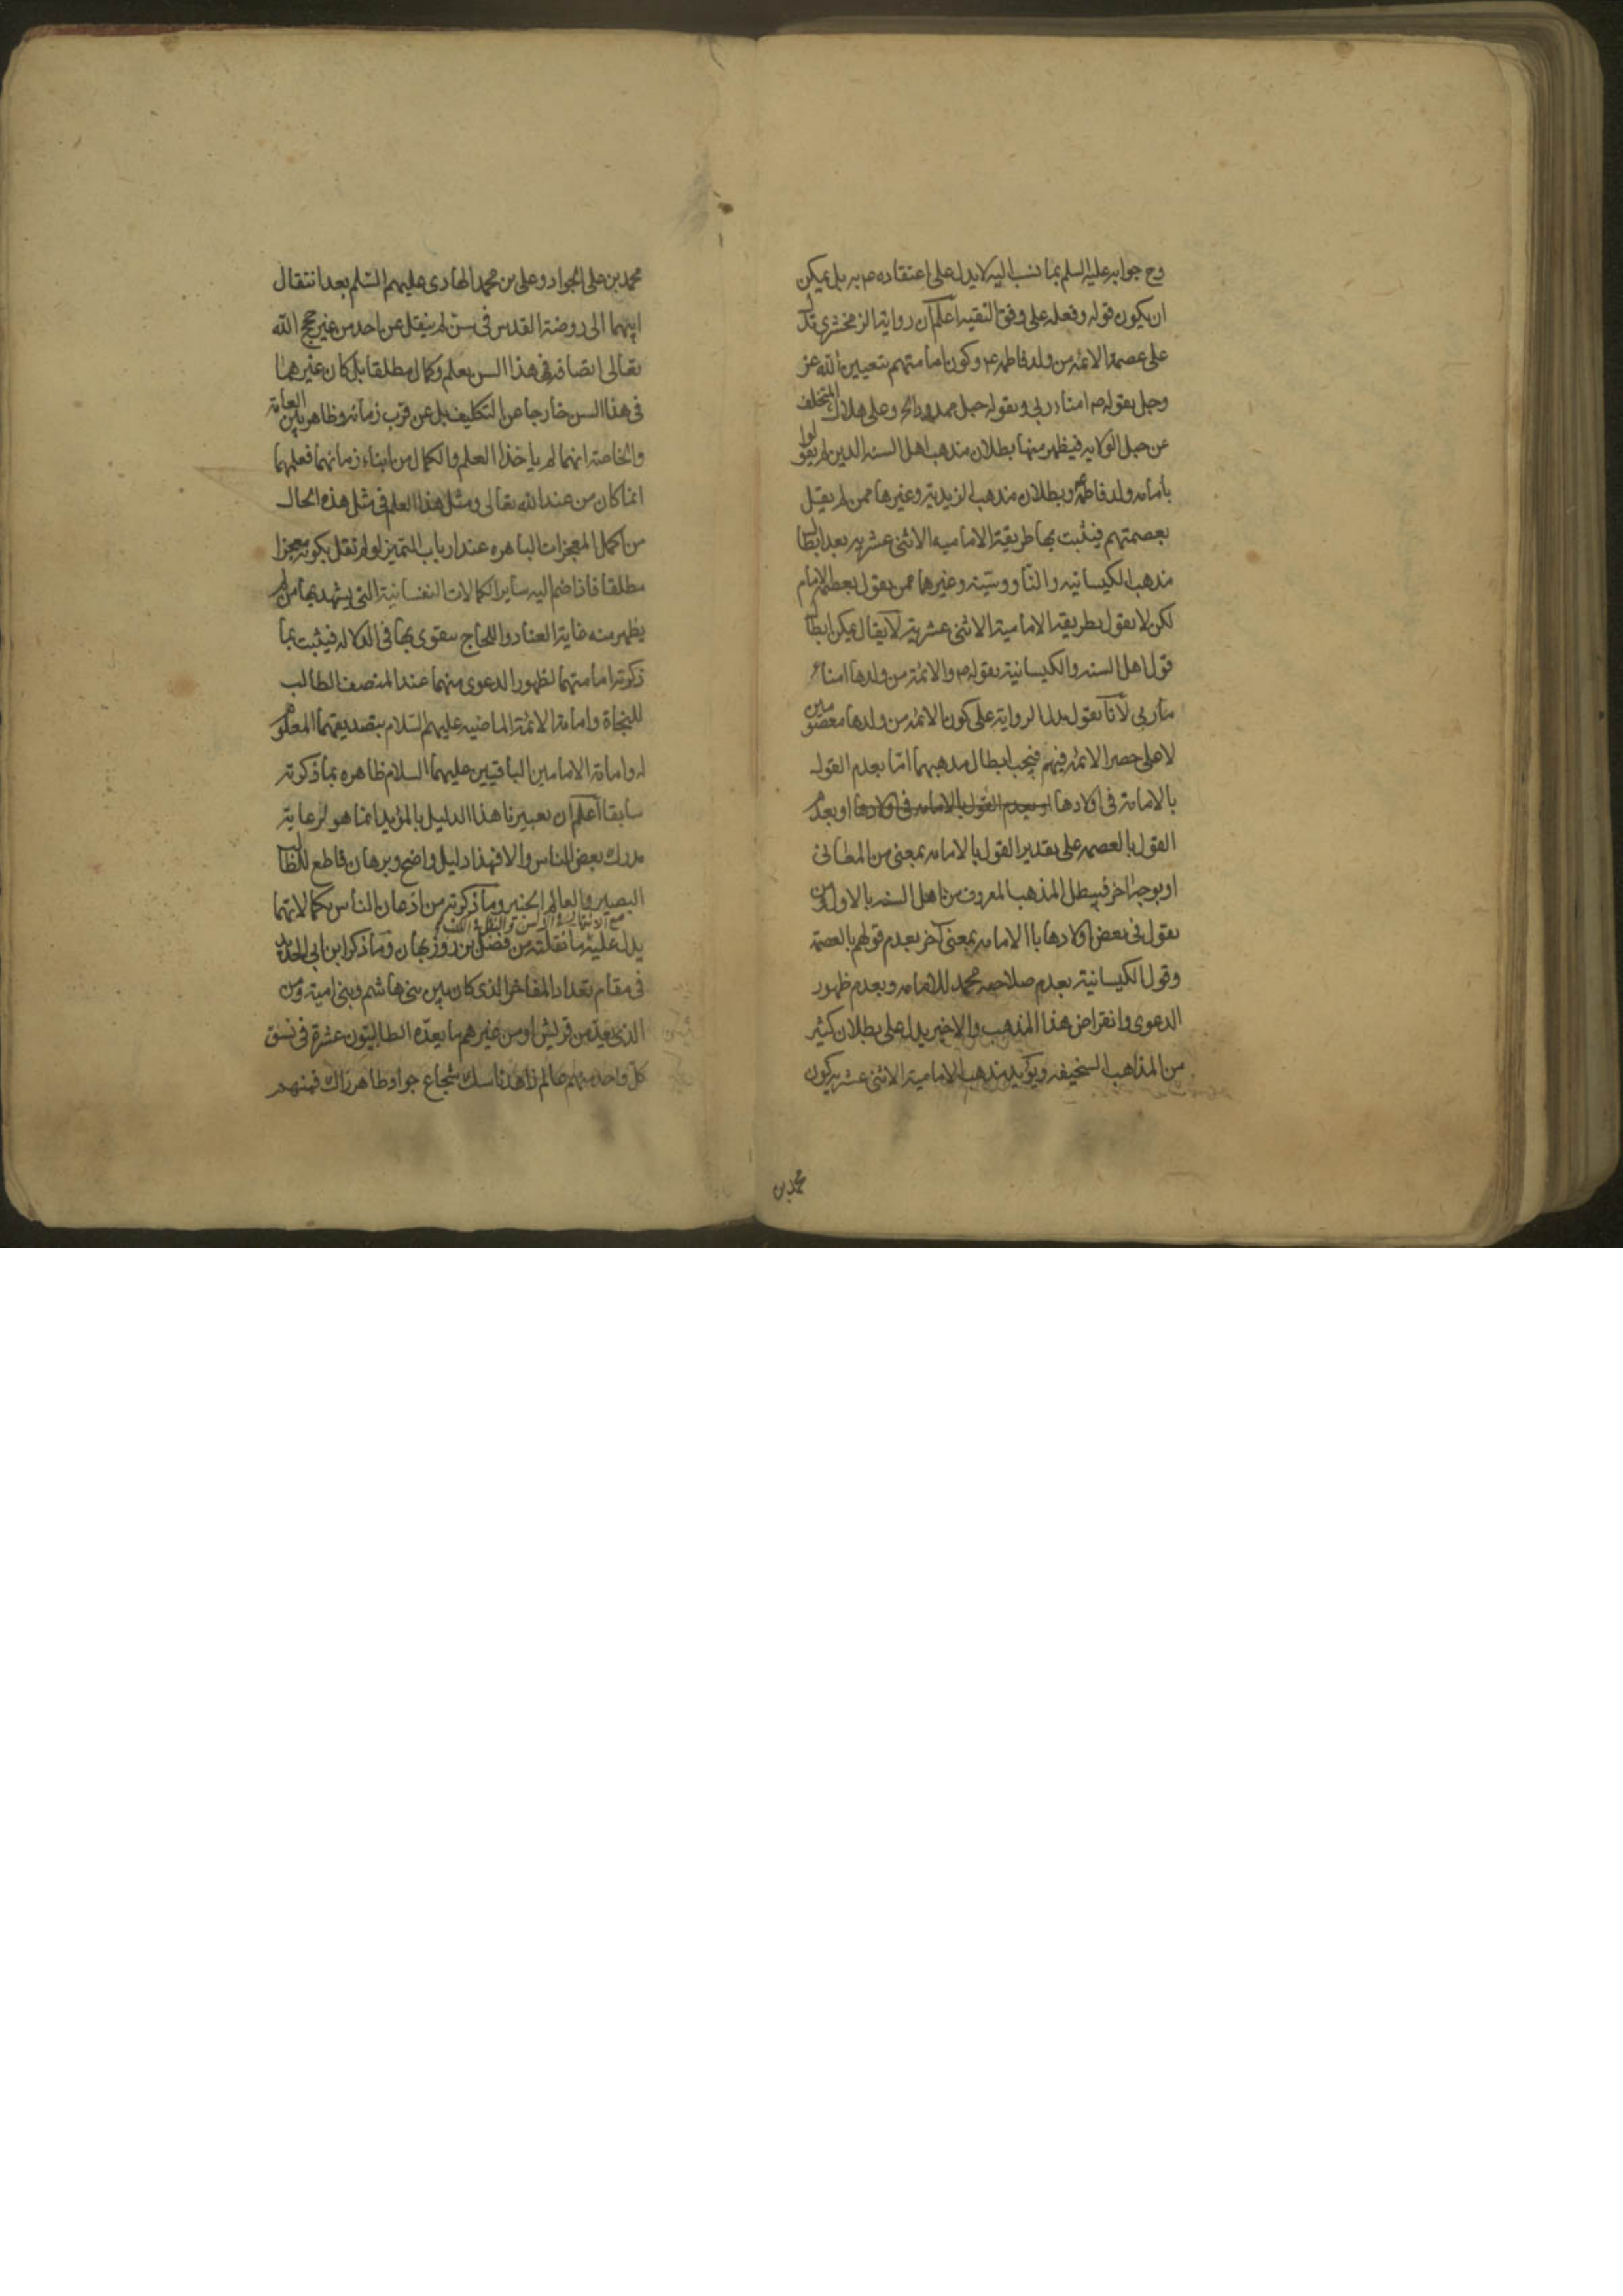 وح جوابه عليه السلم بما نسب اليه لا يدل على اعتقاده ص به بل يمكن
ان يكون قوله وفعله على وفق التقيه اعلم ان رواية الزمخشري تدل
على عصمة الائمه من ولد فاطمه ع وكون امامتهم بتعيين الله عز
وجل بقوله ص امناء ربي وبقوله حبل ممدود الخ وعلى هلاك المتخلف
عن حبل الولايه فيظهر منها بطلان مذهب اهل السنه الذين لم يقولوا
بامامه ولد فاطمة وبطلان مذهب الزيدية وغيرها ممن لم يقل
بعصمتهم فيثبت بها طريقة الاماميه الاثنى عشريه بعد ابطال
مذهب الكيسانيه والناووسيّه وغيرها ممن يقول بعصمة الامام
لكن لا يقول بطريقة الامامية الاثنى عشرية لا يقال يمكن ابطال
قول اهل السنه والكيسانية بقوله ص والائمة من ولدها امناء
ربي لأنا نقول يدل الرواية على كون الائمه من ولدها معصومين
لا على حصر الائمه فيهم فيجب ابطال مذهبهما امّا بعدم القول
بالامامة في اولادها او بعدم القول بالامامه في اولادها او بعدم
القول بالعصمه على تقدير القول بالامامه بمعنى من المعاني
او بوجه اخر فيبطل المذهب المعروف من اهل السنه بالاول ومن
يقول في بعض اولادها باالامامه بمعنى آخر بعدم قولهم بالعصمة
وقول الكيسانية بعدم صلاحيه محمد للامامه وبعدم ظهور
الدعوى وانقراض هذا المذهب والاخير يدل على بطلان كثير
من المذاهب السخيفه ويؤيد مذهب الامامية الاثنى عشريه كون
محمد بن
محمد بن على الجواد وعلى بن محمد الهادى عليهم السّلم بعد انتقال
ابيهما الى روضة القدس فى سن لم ينقل عن احد من غير حجج الله
تعالى اتصافه فى هذا السن بعلم وكمال مطلقا بل كان غيرهما
فى هذا السن خارجا عن التكليف بل عن قرب زمانه وظاهر بين العامة
والخاصة انهما لم ياخذا العلم والكمال من ابناء زمانهما فعلمهما
انما كان من عند الله تعالى ومثل هذا العلم فى مثل هذه الحال
من اكمل المعجزات الباهره عند ارباب التميز لو لم نقل بكونه معجزا
مطلقا فاذا ضم اليه ساير الكمالات النفسانية التى يشهد بها من لم
يظهر منه غاية العناد واللجاج يتقوى بها فى الدلاله فيثبت بما
ذكرته امامتهما لظهور الدعوى منهما عند المنصف الطالب
للنجاة وامامة الائمة الماضيه عليهم السّلام بتصديقهما المعلوم
له وامامة الامامين الباقيين عليهما السلام ظاهره بما ذكرته
سابقا اعلم ان تعبيرنا هذا الدليل بالمؤيد انما هو لرعاية
مدرك بعض الناس والا فهذا دليل واضح وبرهان قاطع للطالب
البصير والعالم الخبير وما ذكرته من اذعان الناس بكمالاتهما
يدل عليه ما نقلته من فضل بن روزبهان وما ذكر ابن ابى الحديد
فى مقام تعداد المفاخر الذى كان بين بنى هاشم وبنى امية ومن
الذى يعدّ من قريش او من غيرهم ما يعدّه الطالبيّون عشرة فى نسق
كل واحد منهم عالم زاهد ناسك شجاع جواد طاهر زاك فمنهم